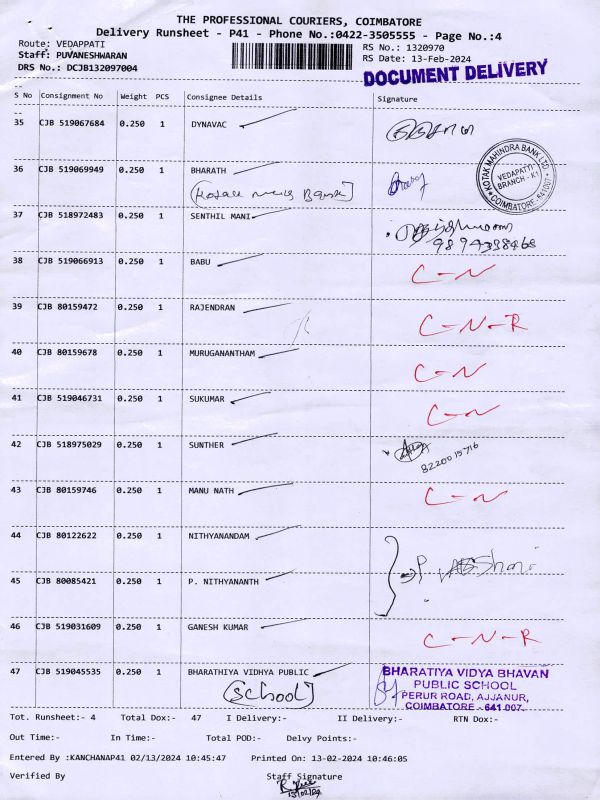 THE PROFESSIONAL COURIERS, COIMBATORE
Delivery Runsheet - P41 - Phone No.:0422-3505555 - Page No.:4
Route: VEDAPPATI
RS No.: 1320970
Staff: PUVANESHWARAN
RS Date: 13-Feb-2024
DRS No.: DCJB132097004
DOCUMENT DELIVERY
S No Consignment No Weight PCS Consignee Details Signature
35 CJB 519067684 0.250 1 DYNAVAC
36 CJB 519069949 0.250 1 BHARATH
KOTAK MAHINDRA BANK LTD
VEDAPATTI
BRANCH - K1
COIMBATORE - 641 007
37 CJB 518972483 0.250 1 SENTHIL MANI
38 CJB 519066913 0.250 1 BABU C-N
39 CJB 80159472 0.250 1 RAJENDRAN C-N-R
40 CJB 80159678 0.250 1 MURUGANANTHAM C-N
41 CJB 519046731 0.250 1 SUKUMAR C-N
42 CJB 518975029 0.250 1 SUNTHER
8220015716
43 CJB 80159746 0.250 1 MANU NATH C-N
44 CJB 80122622 0.250 1 NITHYANANDAM
45 CJB 80085421 0.250 1 P. NITHYANANTH
46 CJB 519031609 0.250 1 GANESH KUMAR C-N-R
47 CJB 519045535 0.250 1 BHARATHIYA VIDHYA PUBLIC
(school)
BHARATIYA VIDYA BHAVAN
PUBLIC SCHOOL
PERUR ROAD, AJJANUR,
COIMBATORE - 641 007.
Tot. Runsheet:- 4 Total Dox:- 47 I Delivery:- II Delivery:- RTN Dox:-
Out Time:- In Time:- Total POD:- Delvy Points:-
Entered By :KANCHANAP41 02/13/2024 10:45:47 Printed On: 13-02-2024 10:46:05
Verified By Staff Signature
13/02/24